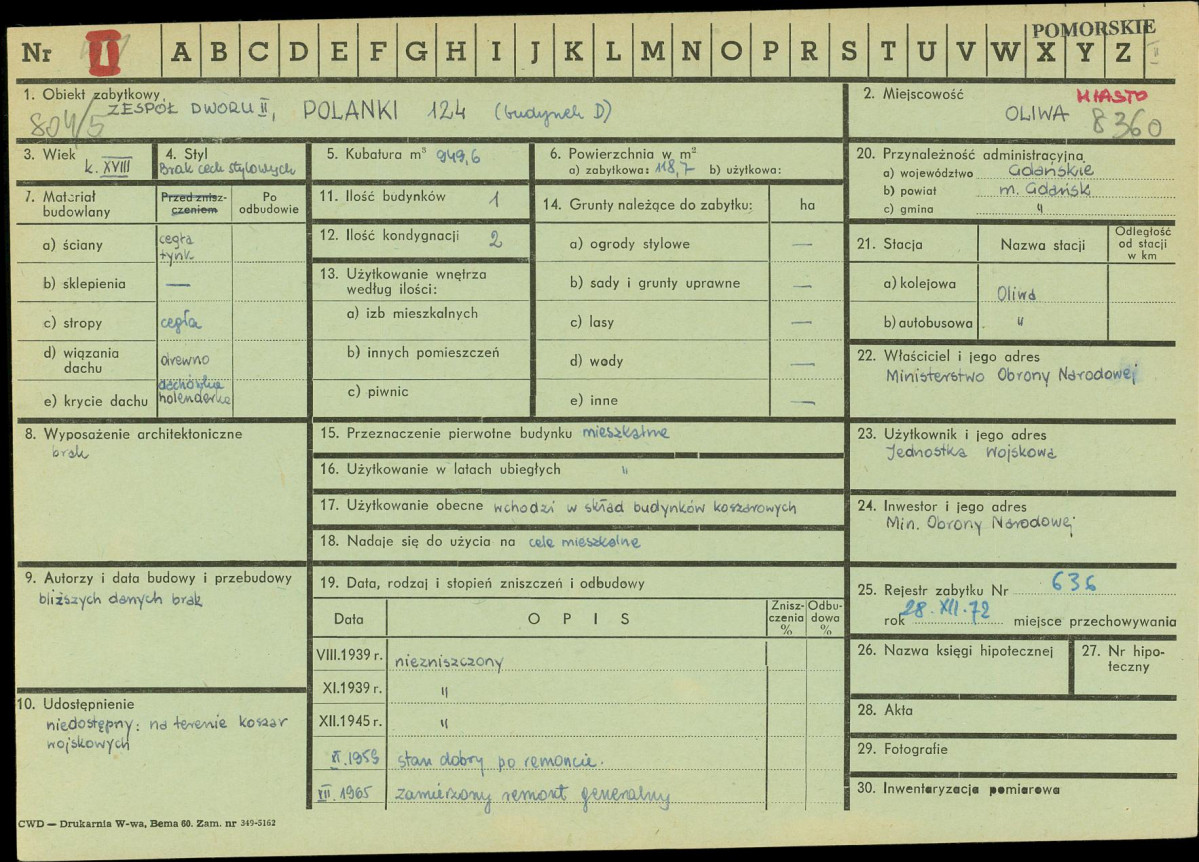 Nr II A B C D E F G H I J K L M N O P R S T U V W X Y Z
POMORSKIE
II
1. Obiekt zabytkowy
ZESPÓŁ DWORU II, POLANKI 124 (budynek D)
804/5
2. Miejscowość
MIASTO
OLIWA
8360
3. Wiek
k. XVIII
4. Styl
Brak cech stylowych
5. Kubatura m³ 949,6
6. Powierzchnia w m²
a) zabytkowa: 118,7 b) użytkowa:
7. Materiał budowlany
Przed zniszczeniem
Po odbudowie
a) ściany cegła tynk
b) sklepienia —
c) stropy cegła
d) wiązania dachu drewno
e) krycie dachu dachówka holenderka
8. Wyposażenie architektoniczne
brak
9. Autorzy i data budowy i przebudowy
bliższych danych brak
10. Udostępnienie
niedostępny: na terenie koszar
wojskowych
11. Ilość budynków 1
12. Ilość kondygnacji 2
13. Użytkowanie wnętrza
według ilości:
a) izb mieszkalnych
b) innych pomieszczeń
c) piwnic
14. Grunty należące do zabytku: ha
a) ogrody stylowe —
b) sady i grunty uprawne —
c) lasy —
d) wody —
e) inne —
15. Przeznaczenie pierwotne budynku mieszkalne
16. Użytkowanie w latach ubiegłych "
17. Użytkowanie obecne wchodzi w skład budynków koszarowych
18. Nadaje się do użycia na cele mieszkalne
19. Data, rodzaj i stopień zniszczeń i odbudowy
Data OPIS Zniszczenia % Odbudowa %
VIII.1939 r. niezniszczony
XI.1939 r. "
XII.1945 r. "
XI.1959 stan dobry po remoncie.
VII 1965 zamierzony remont generalny
20. Przynależność administracyjna
a) województwo Gdańskie
b) powiat m. Gdańsk
c) gmina "
21. Stacja Nazwa stacji Odległość od stacji w km
a) kolejowa Oliwa
b) autobusowa "
22. Właściciel i jego adres
Ministerstwo Obrony Narodowej
23. Użytkownik i jego adres
Jednostka Wojskowa
24. Inwestor i jego adres
Min. Obrony Narodowej
25. Rejestr zabytku Nr 636
rok 28.XII.72 miejsce przechowywania
26. Nazwa księgi hipotecznej
27. Nr hipoteczny
28. Akta
29. Fotografie
30. Inwentaryzacja pomiarowa
CWD — Drukarnia W-wa, Bema 60. Zam. nr 349-5162